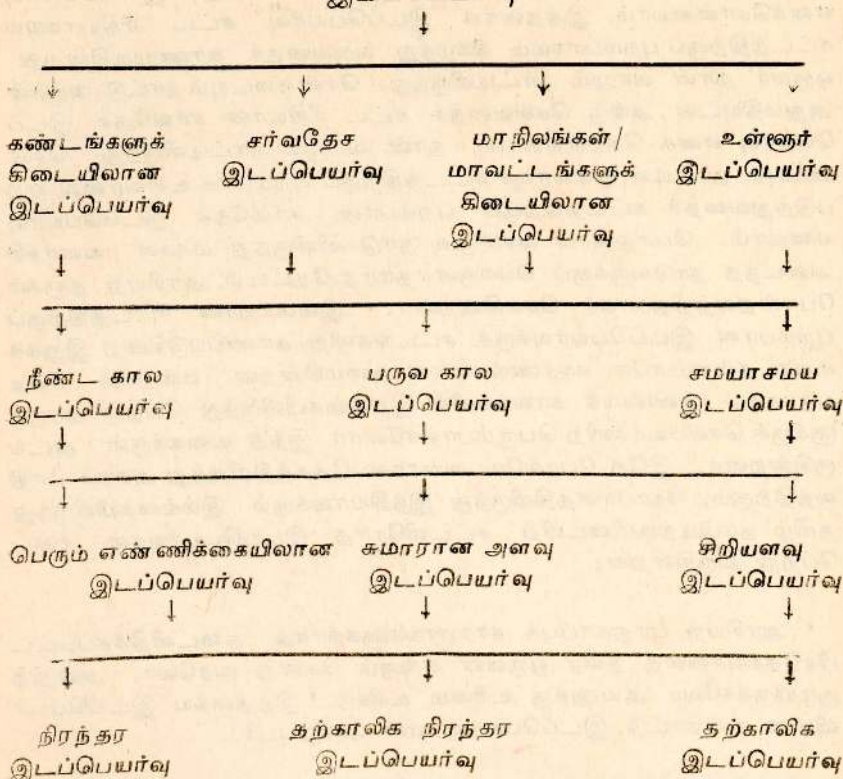 கண்டங்களுக்
கிடையிலான
இடப்பெயர்வு
சர்வதேச
இடப்பெயர்வு
மாநிலங்கள் /
மாவட்டங்களுக்
கிடையிலான
இடப்பெயர்வு
உள்ளூர்
இடப்பெயர்வு
நீண்ட கால
இடப்பெயர்வு
பருவ கால
இடப்பெயர்வு
சமயாசமய
இடப்பெயர்வு
பெரும் எண்ணிக்கையிலான
இடப்பெயர்வு
சுமாரான அளவு
இடப்பெயர்வு
சிறியளவு
இடப்பெயர்வு
நிரந்தர
இடப்பெயர்வு
தற்காலிக நிரந்தர
இடப்பெயர்வு
தற்காலிக
இடப்பெயர்வு